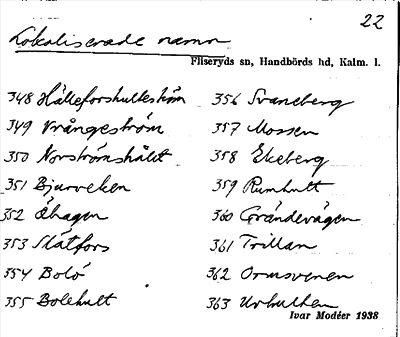 22
Lokaliserade namn
Fliseryds sn, Handbörds hd, Kalm. l.
348 Hälleforshulteström
349 Vrångeström
350 Norströmshålet
351 Bjurveken
352 Åhagen
353 Slätfors
354 Bolö
355 Bolehult
356 Svaneberg
357 Mossen
358 Ekeberg
359 Rumhult
360 Grändevägen
361 Trillan
362 Ormsvenen
363
Ivar Modéer 1938